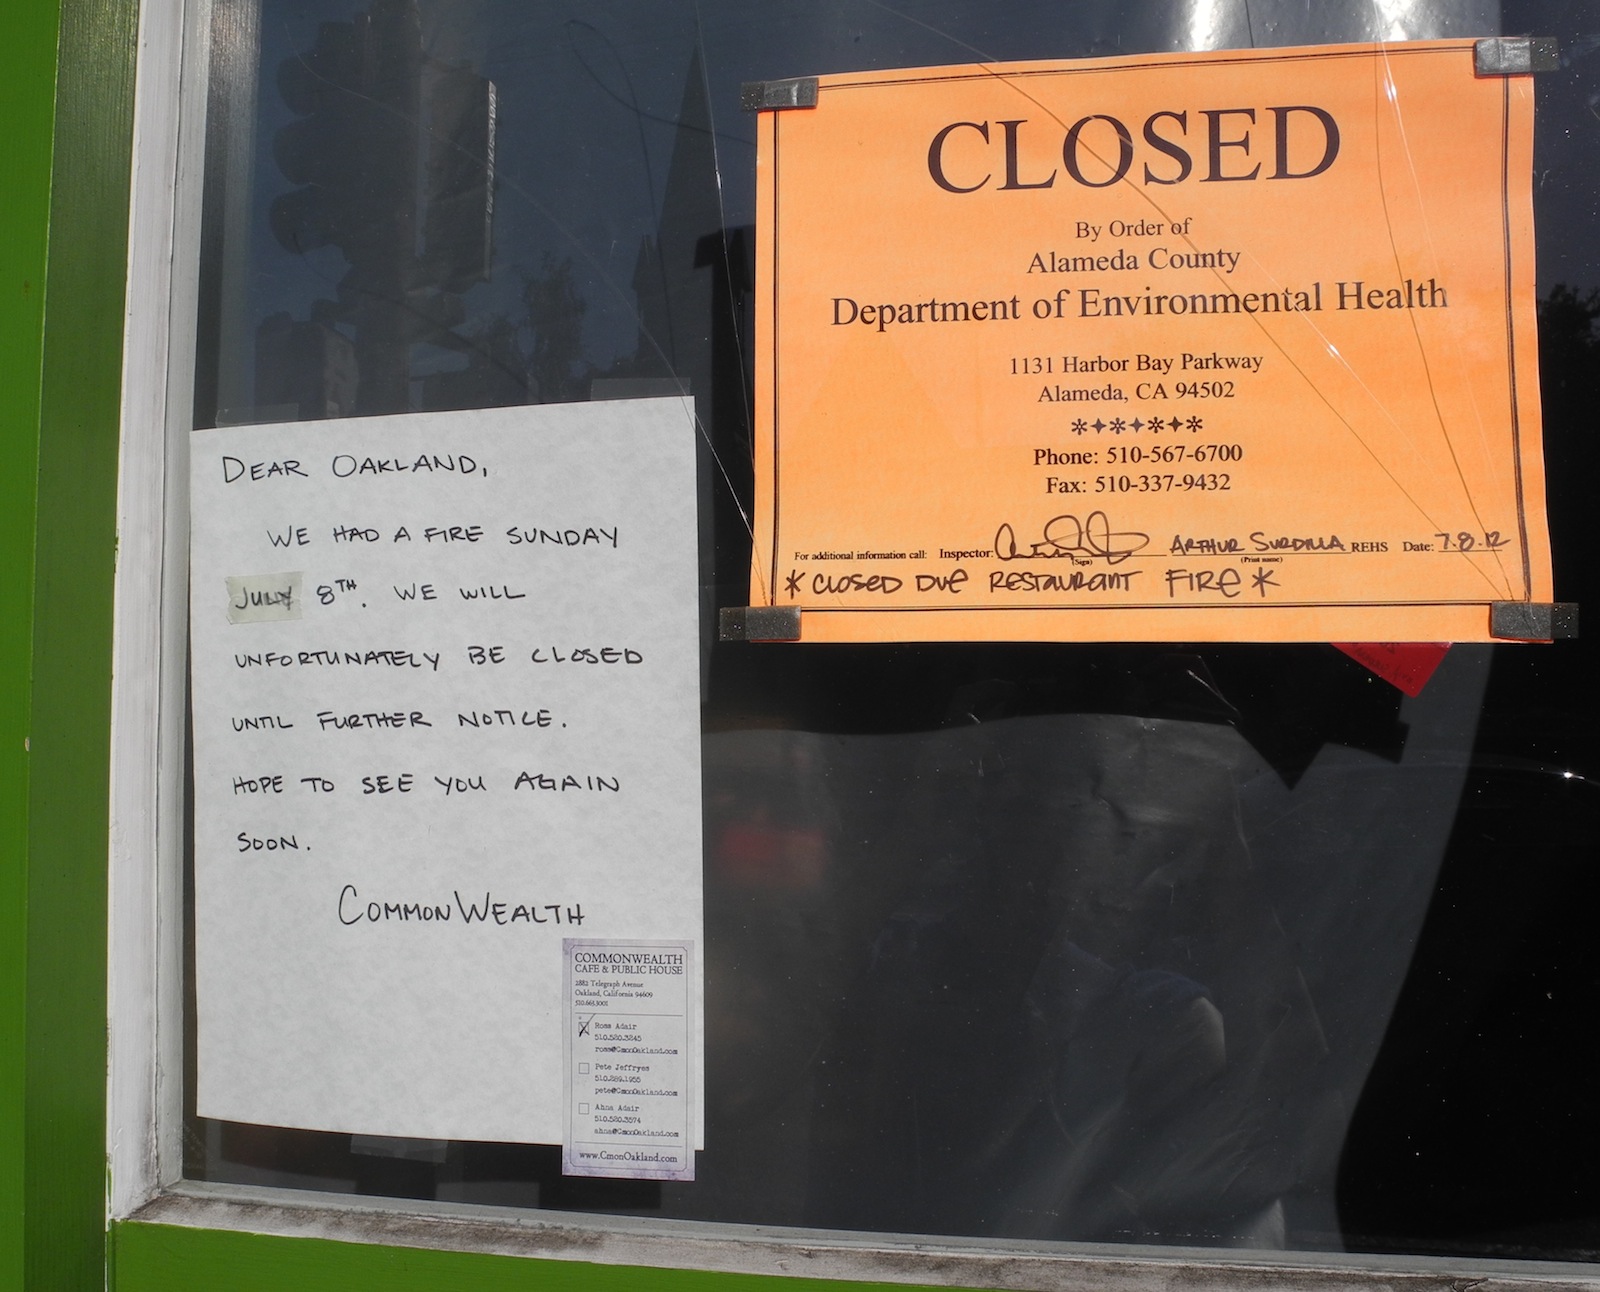 DEAR OAKLAND,
WE HAD A FIRE SUNDAY
JULY 8TH. WE WILL
UNFORTUNATELY BE CLOSED
UNTIL FURTHER NOTICE.
HOPE TO SEE YOU AGAIN
SOON.
COMMONWEALTH
COMMONWEALTH
CAFE & PUBLIC HOUSE
2882 Telegraph Avenue
Oakland, California 94609
510.663.3001
Ross Adair
510.520.3245
ross@CmonOakland.com
Pete Jeffryes
510.289.1955
pete@CmonOakland.com
Ahna Adair
510.520.3574
ahna@CmonOakland.com
www.CmonOakland.com
CLOSED
By Order of
Alameda County
Department of Environmental Health
1131 Harbor Bay Parkway
Alameda, CA 94502
Phone: 510-567-6700
Fax: 510-337-9432
For additional information call: Inspector: ARTHUR SURDILLA REHS Date: 7.8.12
(Sign) (Print name)
* CLOSED DUE RESTAURANT FIRE *